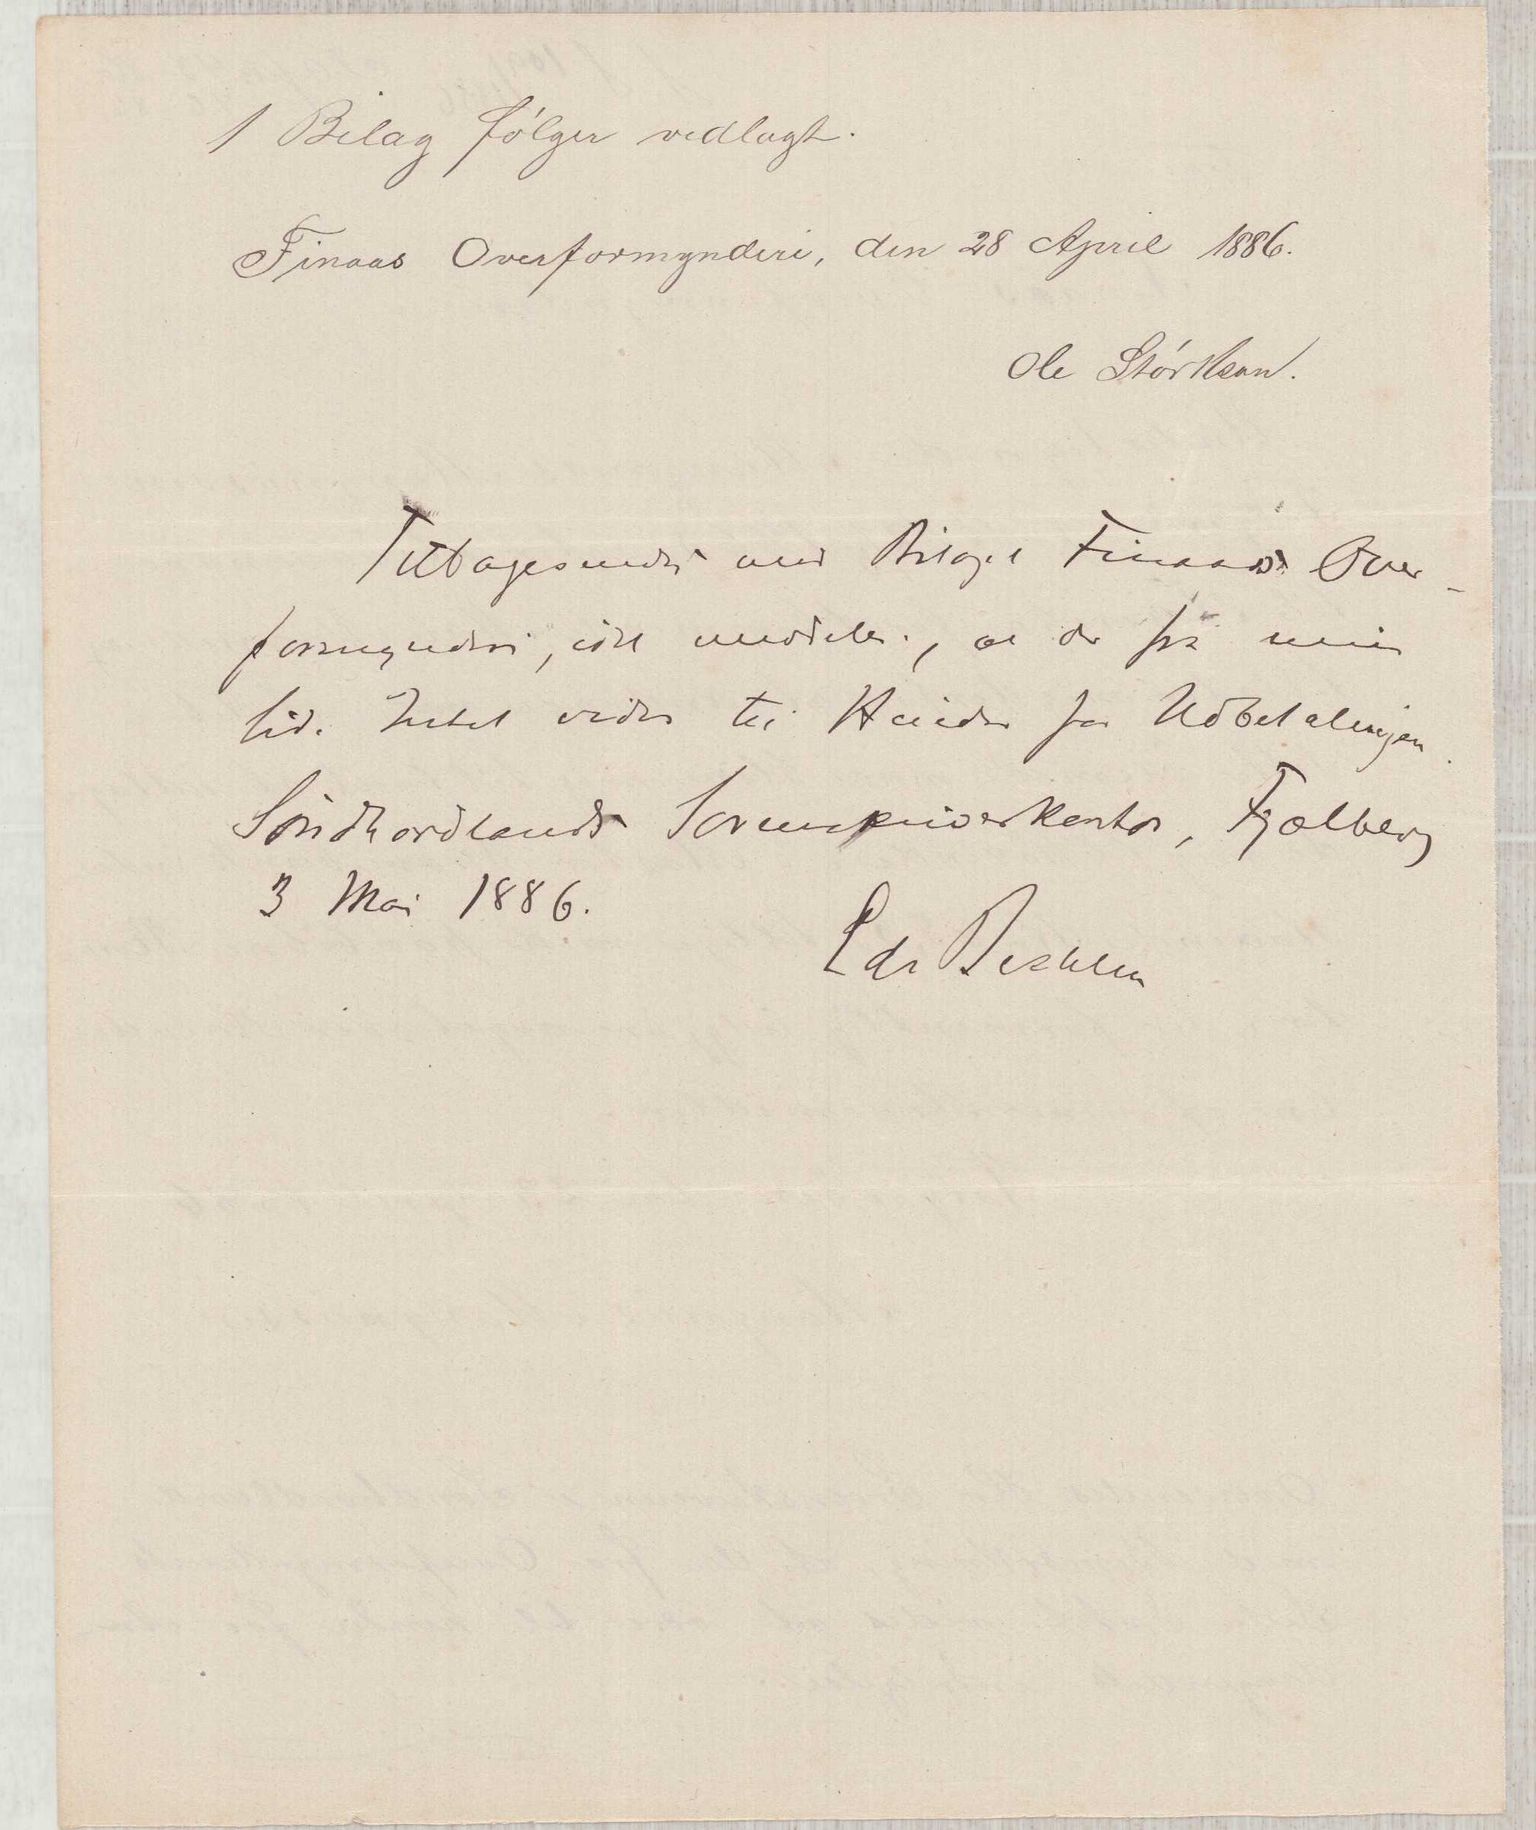 1 Bilag følger vedlagt.
Finaas Overformynderi, den 28 April 1886.
Ole Størksen.
Tilbagesendes med Bilaget Finaas Over-
formynderi, idet meddeles, at der fra min
Side Intet vides til Hinder for Udbetalingen.
Søndhordlands Sorenskriverkontor, Fjælberg
3 Mai 1886.
Edv